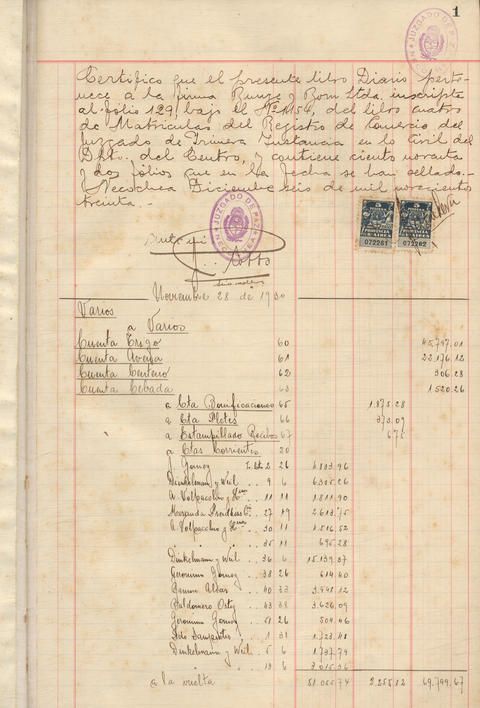 1
JUZGADO DE PAZ
Certifico que el presente libro Diario perte-
nece a la firma Bunge y Born Ltda. inscripta
al folio 129, bajo el Nº 1154, del libro cuatro
de Matriculas del Registro de Comercio del
Juzgado de Primera Instancia en lo Civil del
Dpto. del Centro, y contiene ciento noventa
y dos folios que en la fecha se han sellado.-
Necochea Diciembre seis de mil novecientos
treinta.-
JUZGADO DE PAZ
Ante mi
072261 072262
Noviembre 28 de 1930
Varios
a Varios
Cuenta Trigo 60 45.797.01
Cuenta Avena 61 22.176.12
Cuenta Centeno 62 306.28
Cuenta Cebada 63 1.520.26
a Cta Bonificaciones 65 1.875.28
a Cta Fletes 66 373.09
a Estampillado Recibos 67
a Ctas Corrientes 20
J. Gomez 2 26 4.833.96
Dinkelmann y Weil .. 9 6 6305.26
A. Volpacchio y Hno 11 11 1.811.90
27 19 2.613.75
A. Volpacchio y Hnos .. 30 11 4.516.52
" .. 35 11 695.28
Dinkelmann y Weil .. 36 6 15.139.37
Geronimo Gomez .. 38 26 614.40
40 33 3.948.12
Baldomero Ortiz .. 43 38 3.626.09
Geronimo Gomez .. 51 26 504.46
1 31 1.723.48
Dinkelmann y Weil .. 5 6 1.737.79
" 19 6 3.015.36
a la vuelta 51.055.74 2.255.12 69.799.67